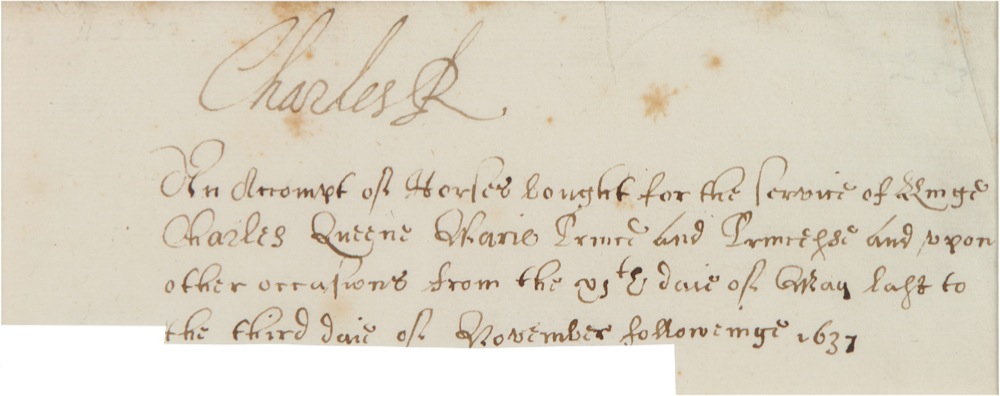 Charles R.
An Accompt of Horses bought for the service of Kinge
Charles Queene Marie Prince and Princesse and vpon
other occasions from the xjth daie of May last to
the third daie of November followeinge 1637